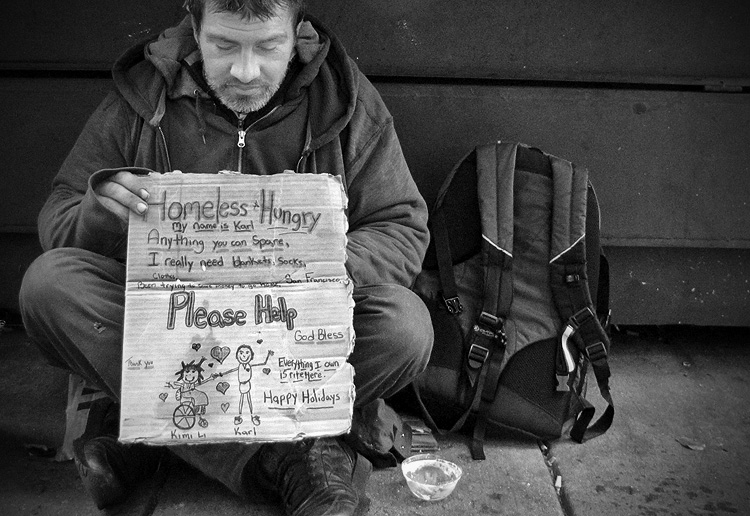 Homeless + Hungry
My name is Karl
Anything you can Spare,
I really need blankets, socks,
Clothes,
Been trying to save money to go home. San Francisco,
Please Help
God Bless
Thank you
Everything I own
is rite Here.
Happy Holidays
Kimi Li
Karl